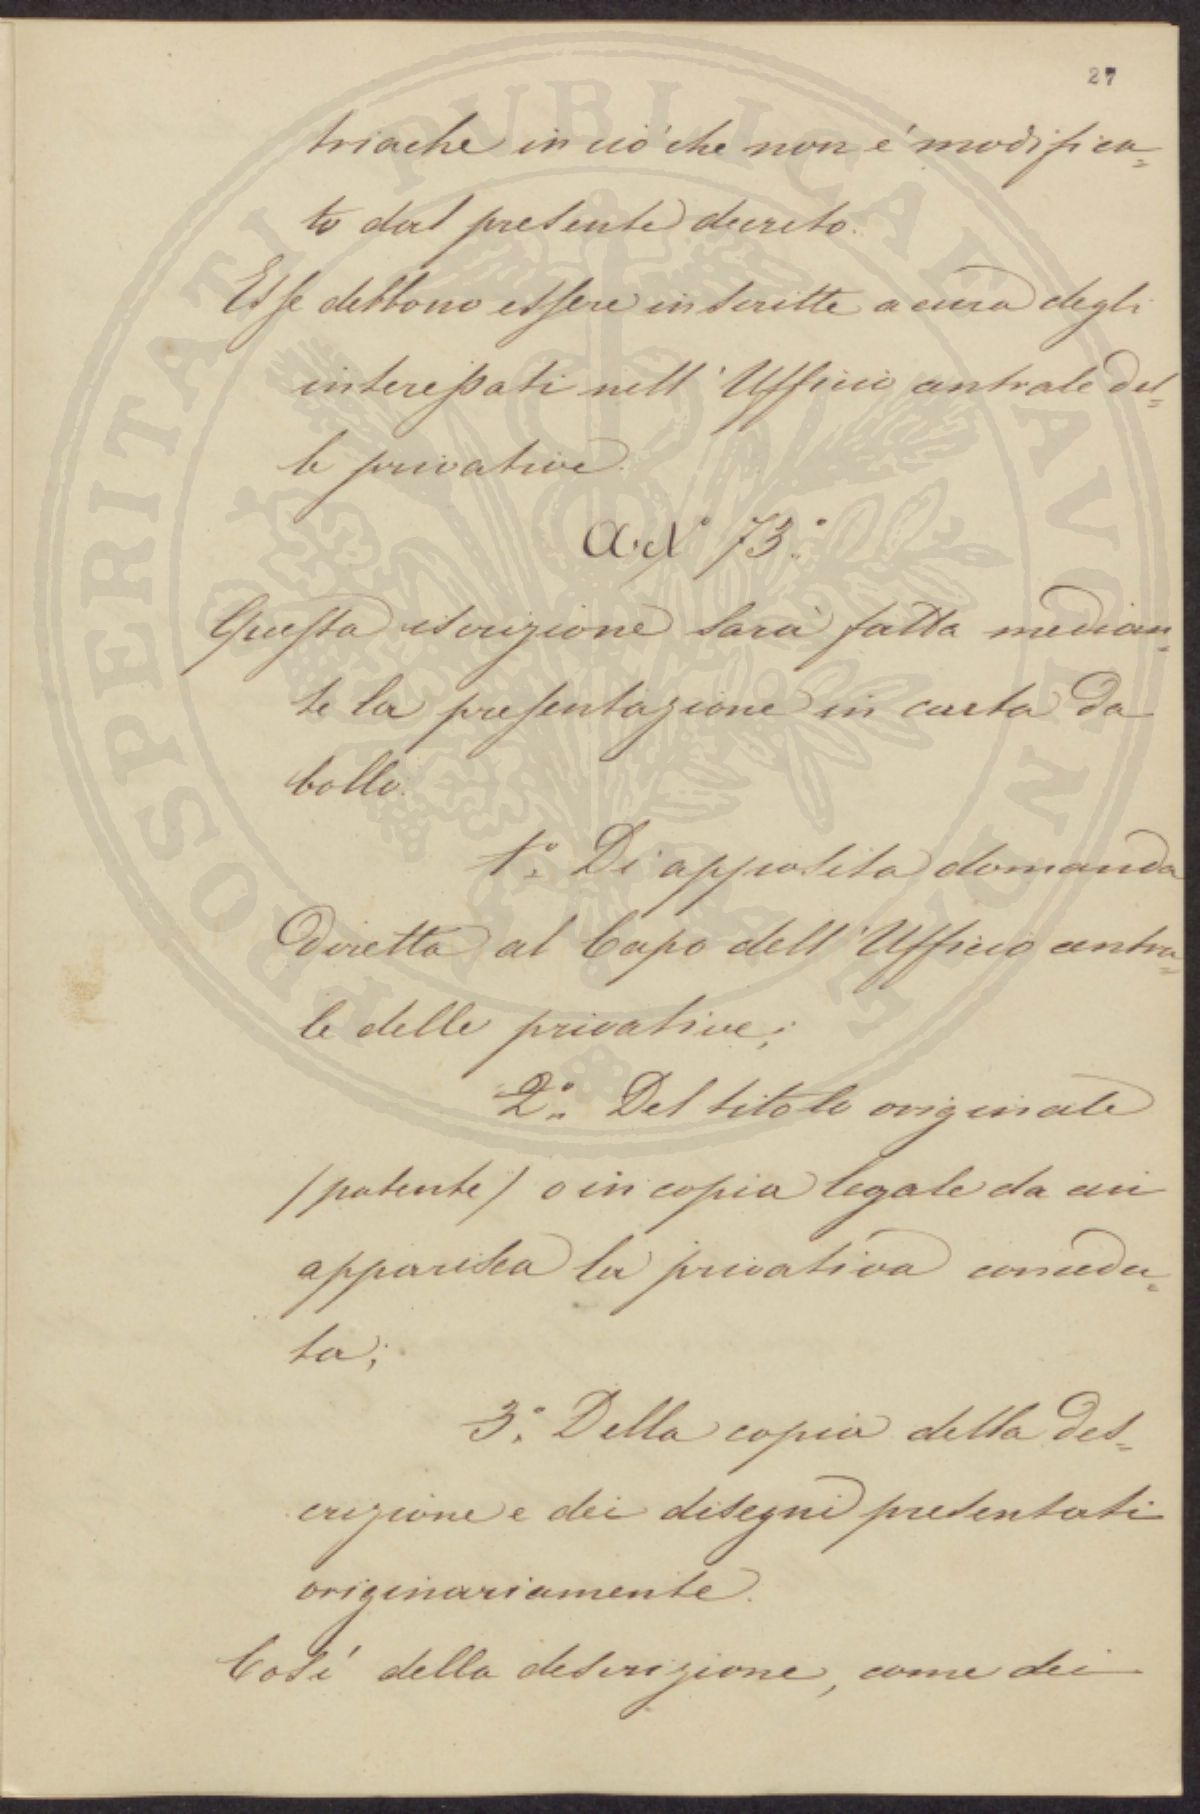 27
triache in ciò che non é modifica=
to dal presente decreto.
Esse debbono essere inscritte a cura degli
interessati nell'Ufficio centrale del=
le privative.
Art.° 73.°
Questa iscrizione sarà fatta median=
te la presentazione in carta da
bollo.
1.° Di apposita domanda
diretta al Capo dell'Ufficio centra=
le delle privative;
2.° Del titolo originale
(patente) o in copia legale da cui
apparisca la privativa conceda=
ta;
3.° Della copia della des=
crizione e dei disegni presentati
originariamente.
Cosí della descrizione, come dei
PROSPERITATI PUBLICAE AVGENDAE